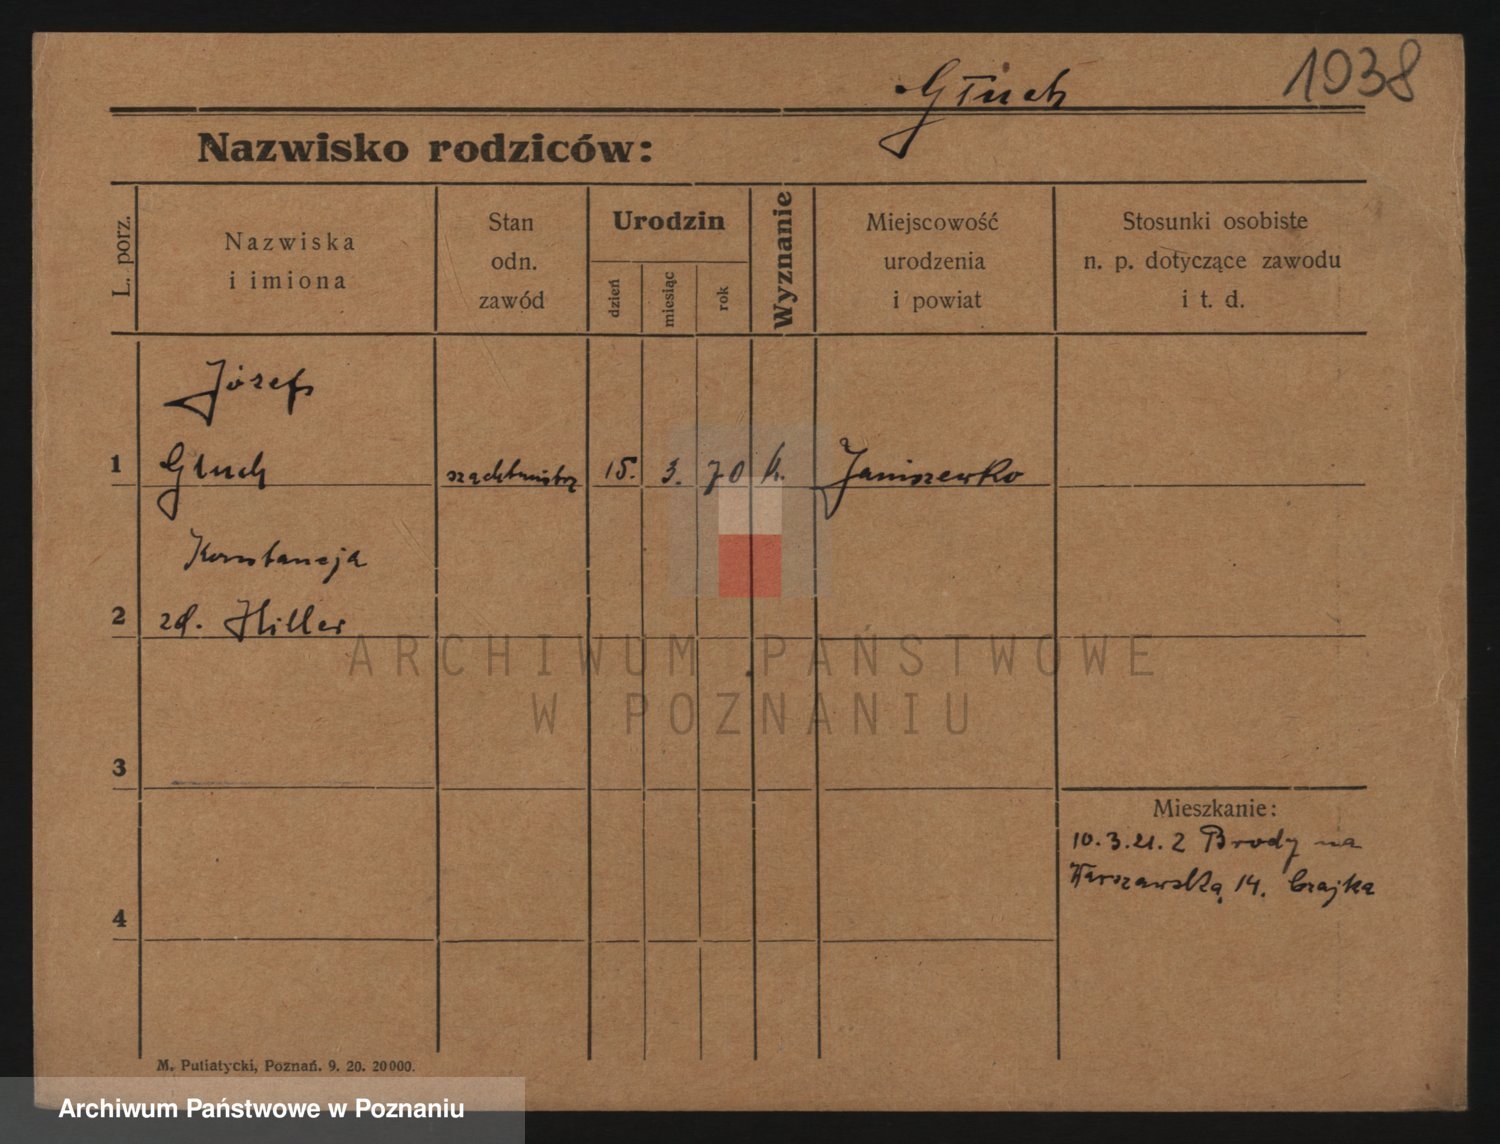 Głuch
1038
Nazwisko rodziców:
L. porz.
Nazwiska
i imiona
Stan
odn.
zawód
Urodzin
dzień
miesiąc
rok
Wyznanie
Miejscowość
urodzenia
i powiat
Stosunki osobiste
n. p. dotyczące zawodu
i t. d.
Józef
1 Głuch szachtmistrz 15. 3. 70 k. Janiszewko
Konstancja
2 zd. Hiller
ARCHIWUM PAŃSTWOWE
W POZNANIU
3
Mieszkanie:
10.3.21. z Brody na
Warszawską 14. Czajka
4
M. Putiatycki, Poznań. 9. 20. 20000.
Archiwum Państwowe w Poznaniu